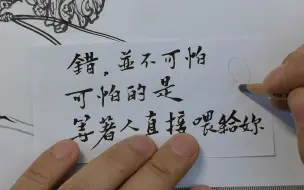 錯，並不可怕
可怕的是
等著人直接喂給妳